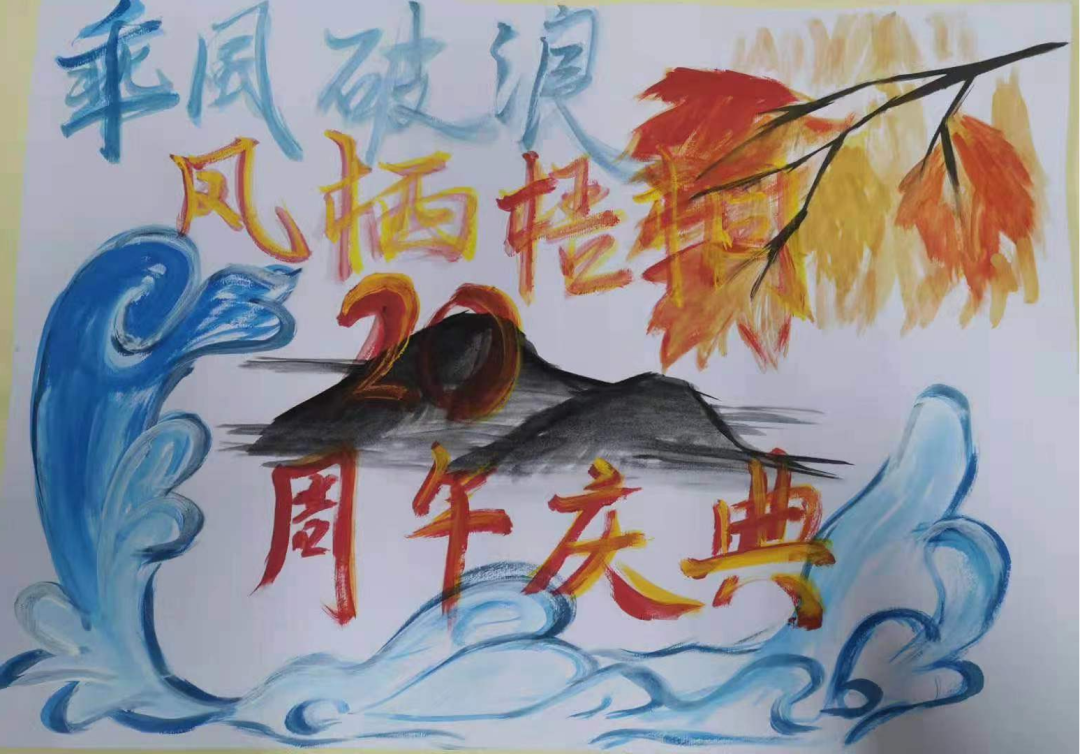 乘风破浪
凤栖梧桐
20
周午庆典